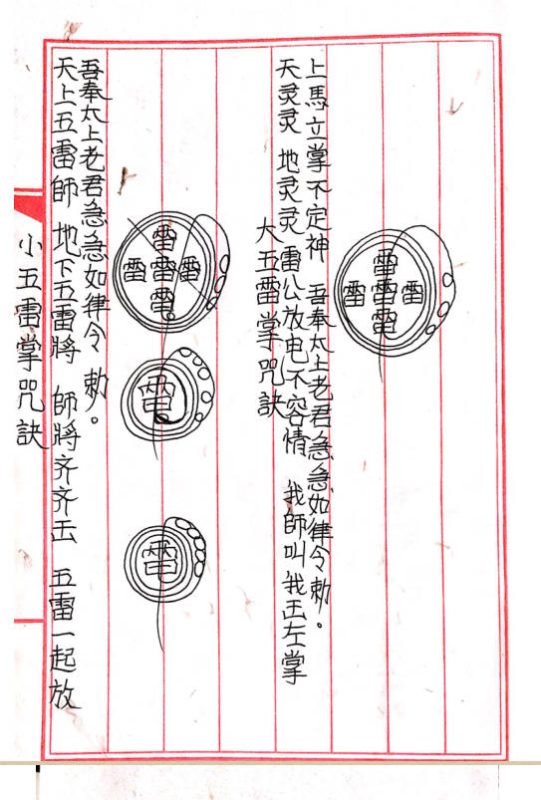 小五雷掌咒訣
天上五雷師 地下五雷將 師將齐齐 五雷一起放
吾奉太上老君急急如律令 勅。
雷
雷雷雷
雷
雷
雷
大五雷掌咒訣
天灵灵 地灵灵 雷公放电不容情 我師叫我左掌
上馬立掌不定神 吾奉太上老君急急如律令勅。
雷
雷雷雷
雷